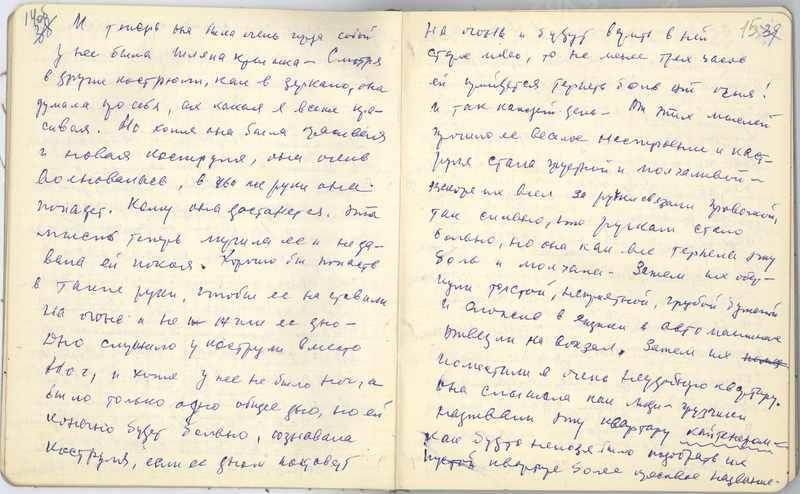 И теперь она была очень горда собой
у нее была шляпа крышка – Смотря
в другие кастрюли, как в зеркало, она
думала про себя, ах какая я всеже кра-
сивая. Но хотя она была красивая
и новая кастрюля, она очень
волновалась, в чьи же руки она
попадет. Кому она достанется. Эта
мысль теперь мучила ее и не да-
вала ей покоя. Хорошо бы попасть
в такие руки, чтобы ее не ставили
на огонь и не жгли ее дно –
Дно служило у кастрюли вместо
ног, и хотя у нее не было ног, а
было только одно общее дно, но ей
конечно будет больно, сознавала
кастрюля, если ее дном поставят
на огонь и будут варить в ней
старое мясо, то не менее трех часов
ей прийдется терпеть боль от огня!
И так каждый день – От этих мыслей
прошло ее веселое настроение и каст-
рюля стала грустной и молчаливой –
вскоре их всех за ручки связали проволокой,
так сильно, что ручкам стало
больно, но она как все терпела эту
боль и молчала – Затем их обер-
нули толстой, неприятной, грубой бумагой
и сложив в ящики в автомашине
отвезли на вокзал. Затем их
поместили в очень неудобную квартиру.
она слышала как люди – грузчики
называли эту квартиру контейнером –
как будто нельзя было подобрать их
квартире более красивое название –